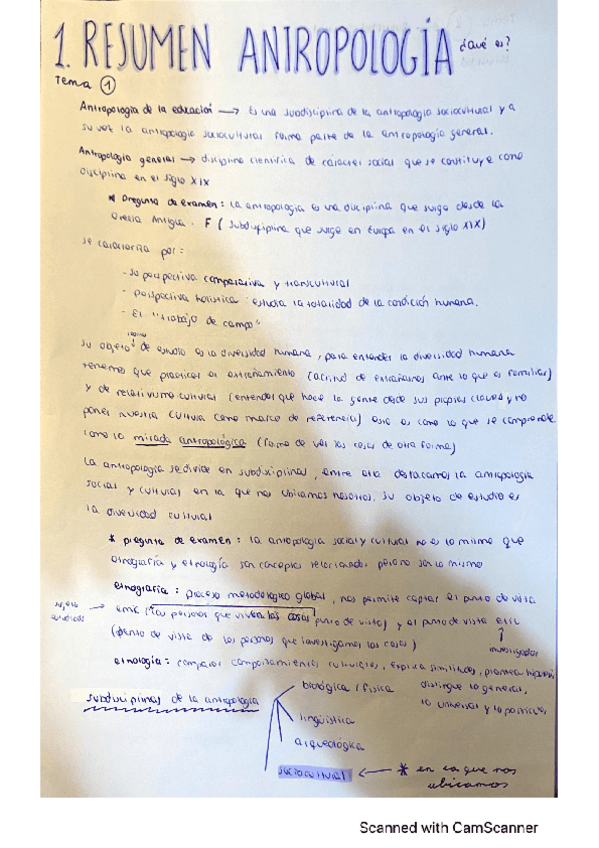 1. RESUMEN ANTROPOLOGÍA ¿Qué es?
Tema 1
Antropología de la educación → Es una subdisciplina de la antropología sociocultural y a
su vez la antropología sociocultural forma parte de la antropología general.
Antropología general → disciplina científica de carácter social que se constituye como
disciplina en el siglo XIX
* Pregunta de examen: la antropología es una disciplina que surge desde la
Grecia Antigua. F (subdisciplina que surge en Europa en el siglo XIX)
se caracteriza por:
- su perspectiva comparativa y transcultural
- Perspectiva holística: estudia la totalidad de la condición humana.
- El "trabajo de campo"
su objeto de estudio es la diversidad humana, para entender la diversidad humana
tenemos que practicar el extrañamiento (actitud de extrañarnos ante lo que es familiar)
y de relativismo cultural (entender que hace la gente desde sus propias claves y no
poner nuestra cultura como marco de referencia) esto es como lo que se comprende
como la mirada antropológica (forma de ver las cosas de otra forma)
La antropología se divide en subdisciplinas, entre ella destacamos la antropología
social y cultural en la que nos ubicamos nosotros. su objeto de estudio es
la diversidad cultural
* pregunta de examen: la antropología social y cultural no es lo mismo que
etnografía y etnología son conceptos relacionados pero no son lo mismo
etnografía: proceso metodológico global, nos permite captar el punto de vista
emic (las personas que viven las cosas punto de vista) y el punto de vista etic
(punto de vista de las personas que investigamos las cosas)
investigador
etnología: comparar comportamientos culturales, explica similitudes, plantea hipótesis
distingue lo general,
lo universal y lo particular
subdisciplinas de la antropología
biológica / física
lingüística
arqueológica
sociocultural ← * en la que nos
ubicamos
Scanned with CamScanner